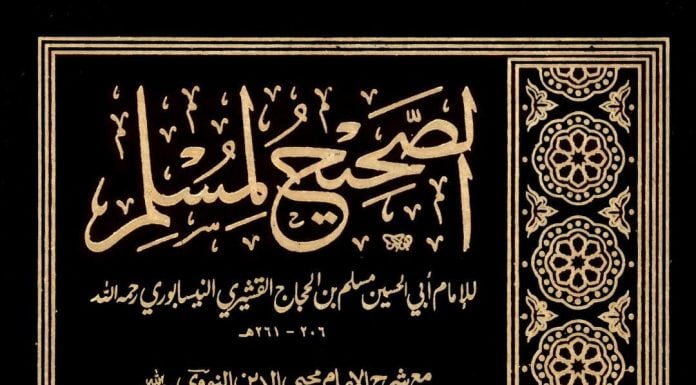 الصَّحِيحُ لِمُسْلِمٍ
للإمام أبي الحسين مسلم بن الحجاج القشيري النيسابوري رحمه الله
٢٠٦ - ٢٦١ هـ
مع شرح الإمام محيي الدين النووي